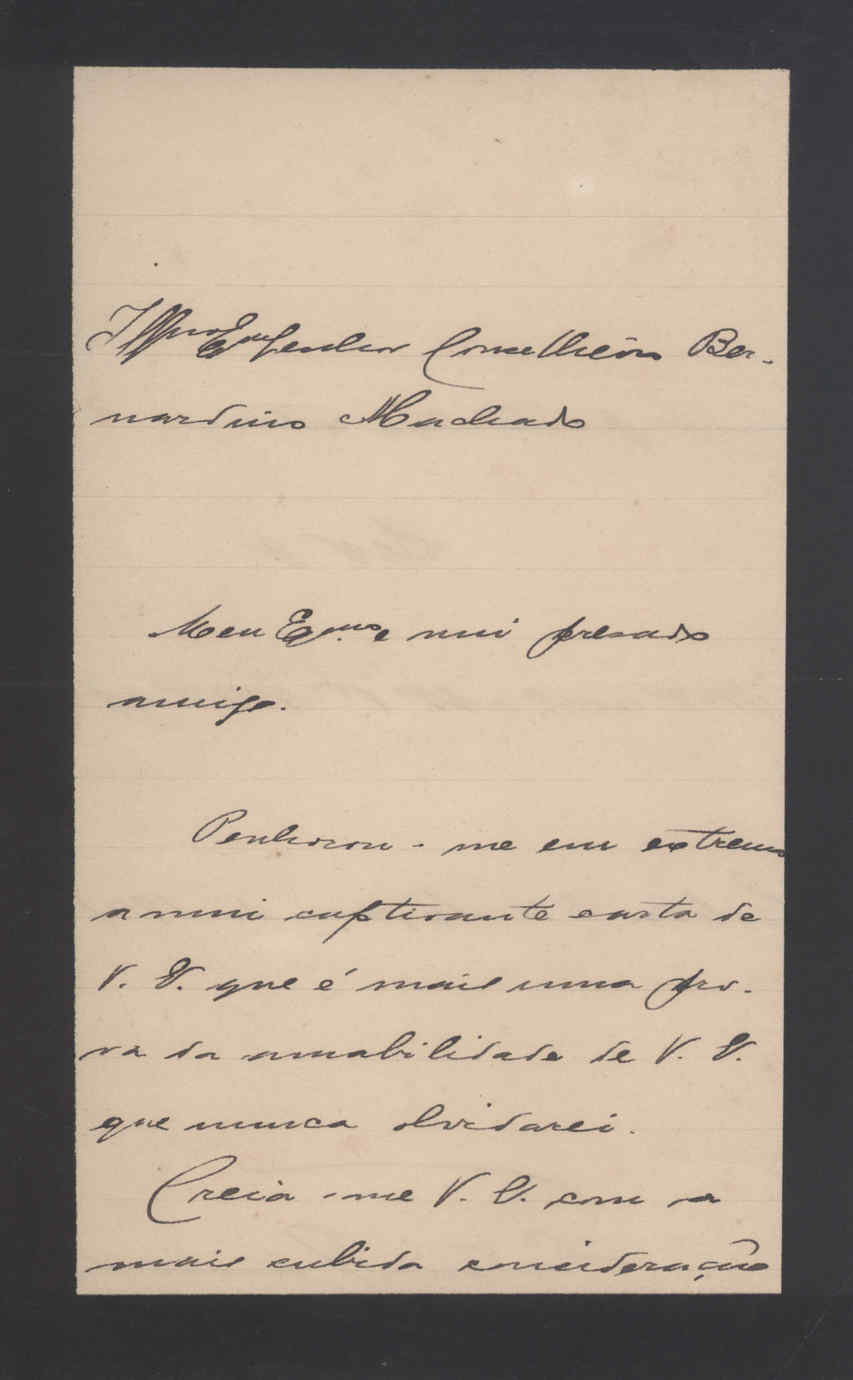 Illmo Exmo Senhor Conselheiro Ber-
nardino Machado
Meu Exmo e mui presado
amigo.
Penhorou-me em extremo
a mui captivante carta de
V. Ex. que é mais uma pro-
va da amabilidade de V. Ex.
que nunca olvidarei.
Creia-me V. Ex. com a
mais subida consideração